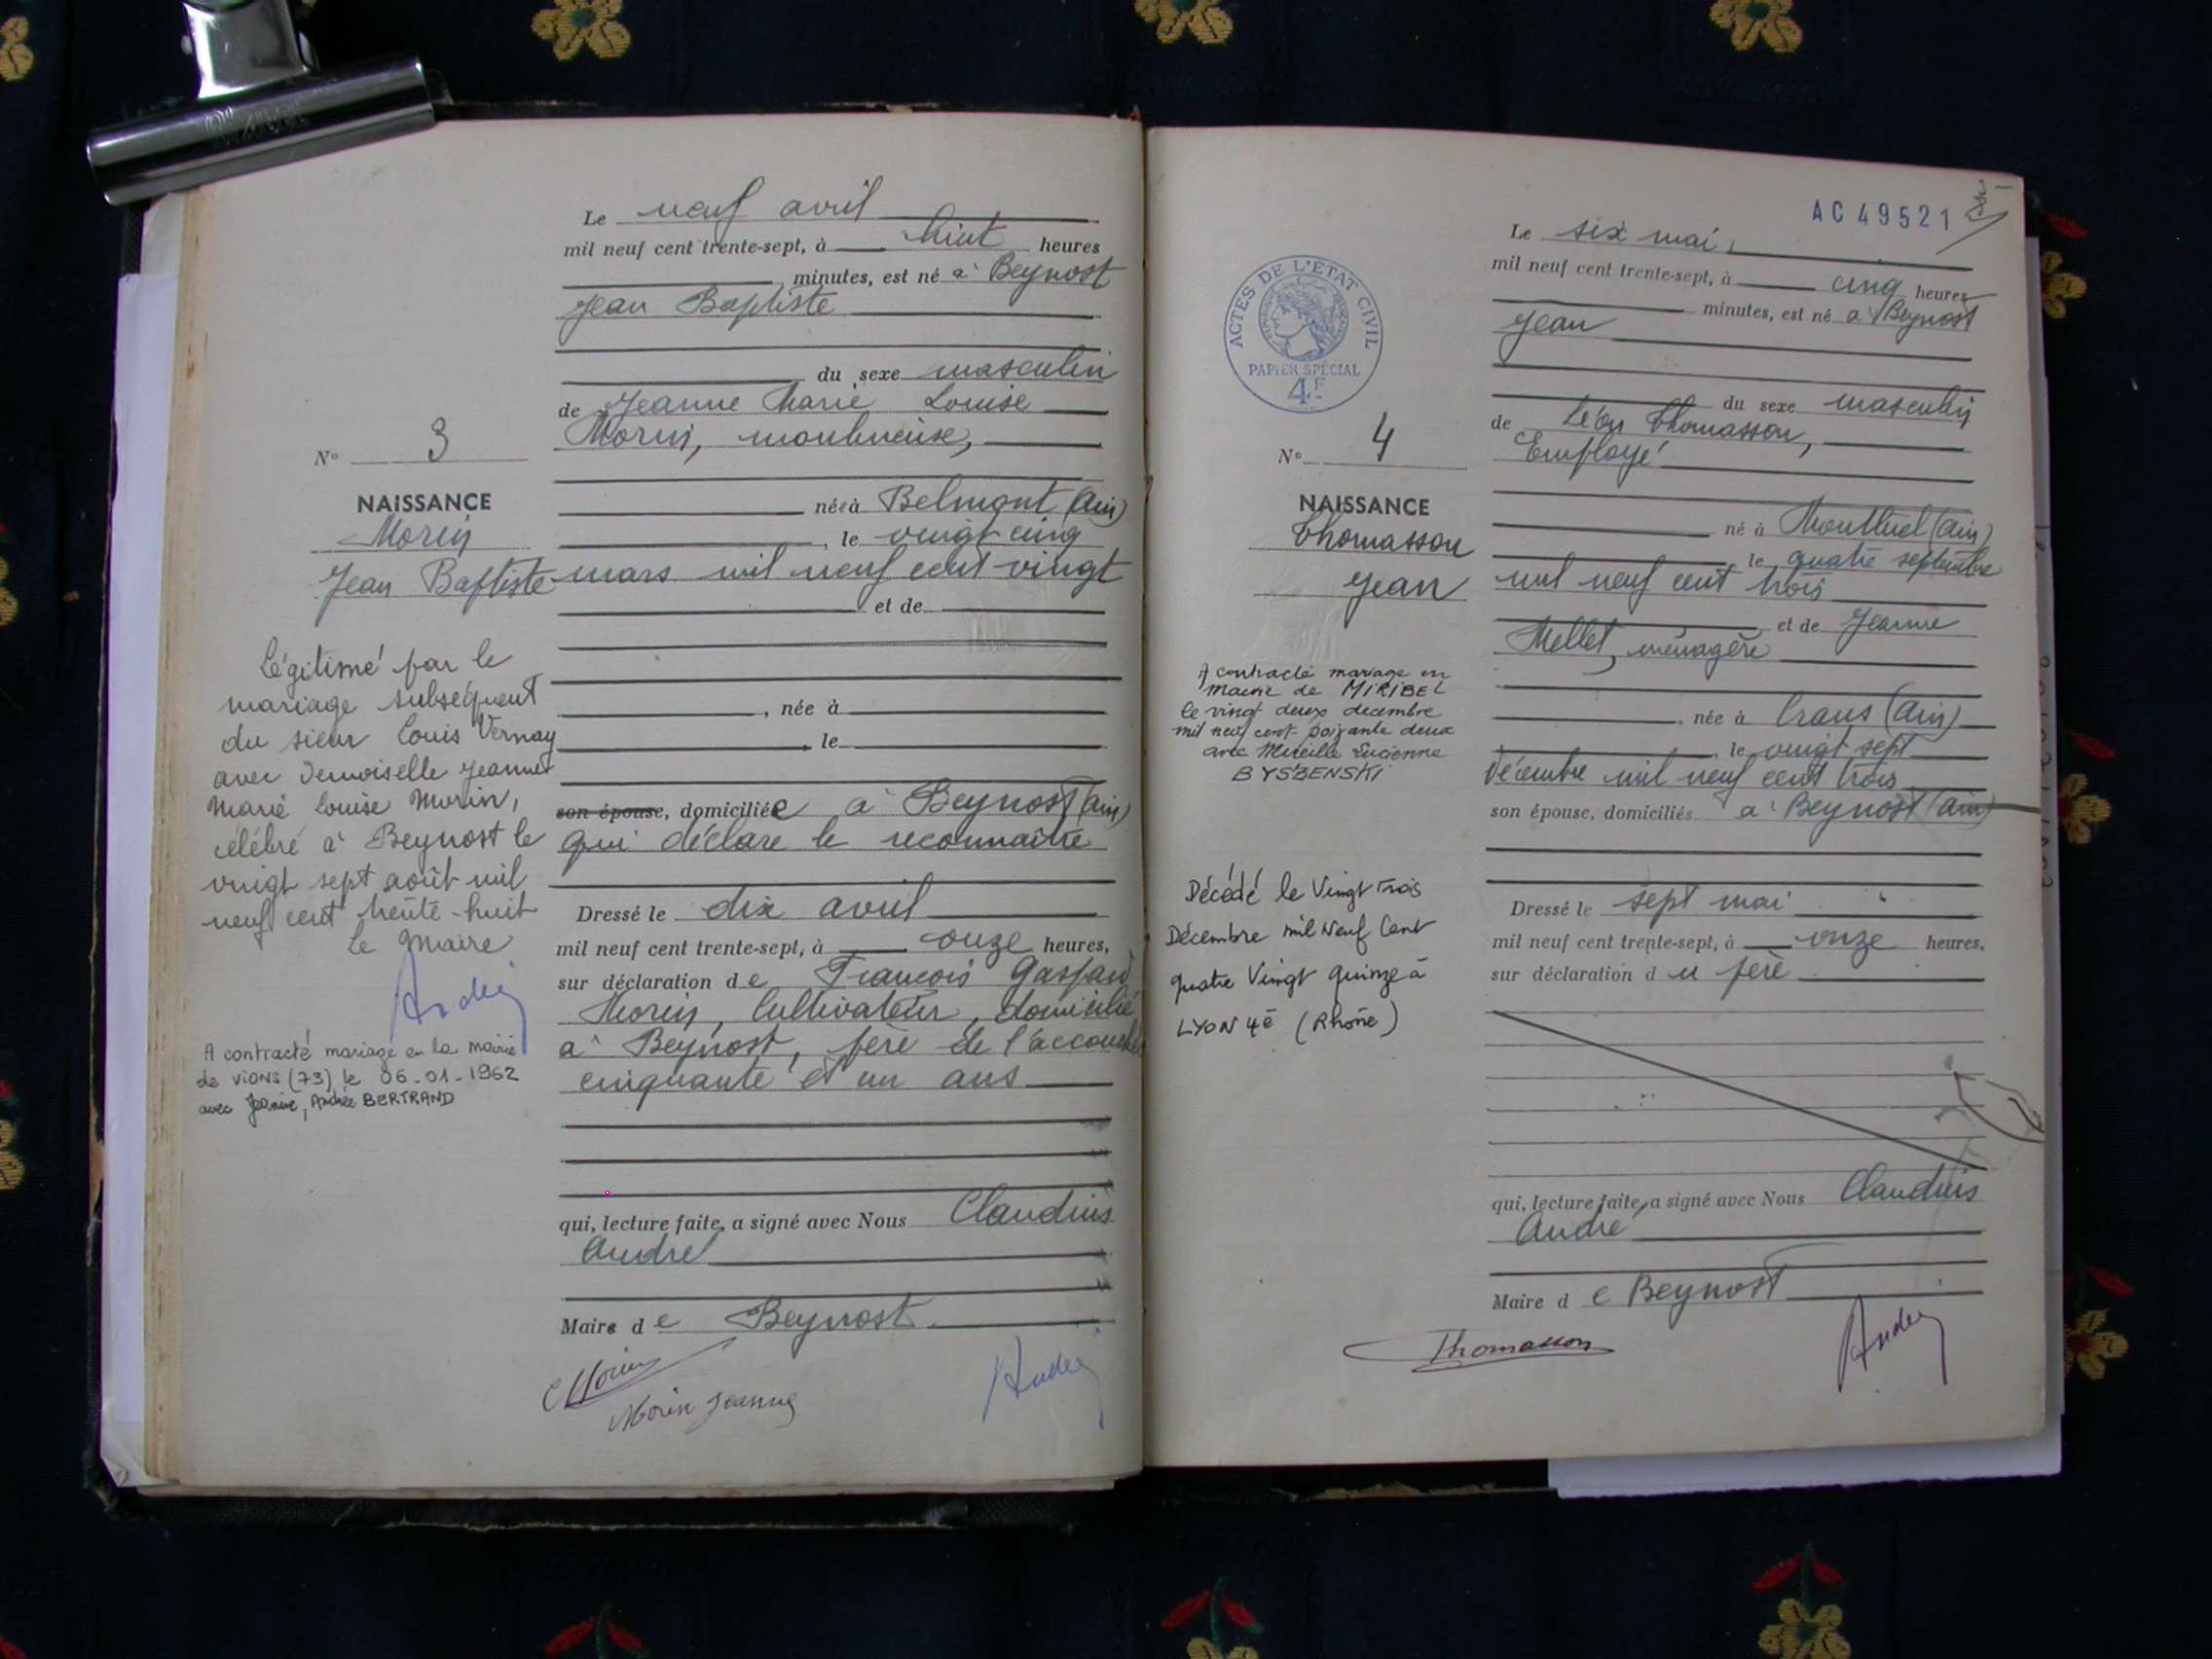 Le neuf avril
mil neuf cent trente-sept, à huit heures
minutes, est né à Beynost
Jean Baptiste
du sexe masculin
de Jeanne Marie Louise
Morin, moulineuse,
née à Belmont (Ain)
, le vingt cinq
mars mil neuf cent vingt
et de
, née à
, le
son épouse, domiciliée à Beynost (Ain)
qui déclare le reconnaître
Dressé le dix avril
mil neuf cent trente-sept, à onze heures,
sur déclaration de François Gaspard
Morin, Cultivateur, domicilié
à Beynost, père de l'accouchée
cinquante et un ans
qui, lecture faite, a signé avec Nous Claudius
André
Maire de Beynost
Morin
Morin Jeanne
André
N° 3
NAISSANCE
Morin
Jean Baptiste
Légitimé par le
mariage subséquent
du sieur Louis Vernay
avec Demoiselle Jeanne
Marie Louise Morin,
célébré à Beynost le
vingt sept août mil
neuf cent trente-huit
Le Maire
André
A contracté mariage en la mairie
de VIONS (73) le 06-01-1962
avec Jeanine, Andrée BERTRAND
AC 49521
Le six mai,
mil neuf cent trente-sept, à cinq heures
minutes, est né à Beynost
Jean
du sexe masculin
de Léon Thomasson,
Employé
né à Montluel (Ain)
le quatre septembre
mil neuf cent trois
et de Jeanne
Mellet, ménagère
, née à Crans (Ain)
, le vingt sept
Décembre mil neuf cent trois
son épouse, domiciliés à Beynost (Ain)
Dressé le sept mai
mil neuf cent trente-sept, à onze heures,
sur déclaration du père
qui, lecture faite, a signé avec Nous Claudius
André
Maire de Beynost
Thomasson
André
ACTES DE L'ÉTAT CIVIL
PAPIER SPÉCIAL
4F
N° 4
NAISSANCE
Thomasson
Jean
A contracté mariage en
mairie de MIRIBEL
le vingt deux decembre
mil neuf cent soixante deux
avec Mireille Lucienne
BYSZENSKI
Décédé le Vingt Trois
Décembre mil Neuf Cent
quatre Vingt quinze à
LYON 4è (Rhône)